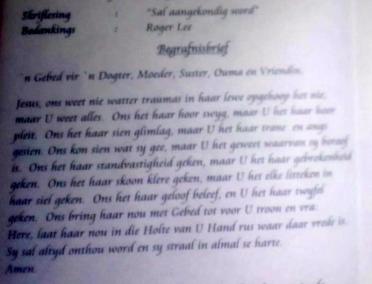 Skriflesing : "Sal aangekondig word"
Bedenkings : Roger Lee
Begrafnisbrief
`n Gebed vir `n Dogter, Moeder, Suster, Ouma en Vriendin.
Jesus, ons weet nie watter traumas in haar lewe opgehoop het nie,
maar U weet alles. Ons het haar hoor swyg, maar U het haar hoor
pleit. Ons het haar sien glimlag, maar U het haar trane en angs
gesien. Ons kon sien wat sy gee, maar U het geweet waarvan sy beroof
is. Ons het haar standvastigheid geken, maar U het haar gebrokenheid
geken. Ons het haar skoon klere geken, maar U het elke litteken in
haar siel geken. Ons het haar geloof beleef, en U het haar twyfel
geken. Ons bring haar nou met Gebed tot voor U troon en vra:
Here, laat haar nou in die Holte van U Hand rus waar daar vrede is.
Sy sal altyd onthou word en sy straal in almal se harte.
Amen.